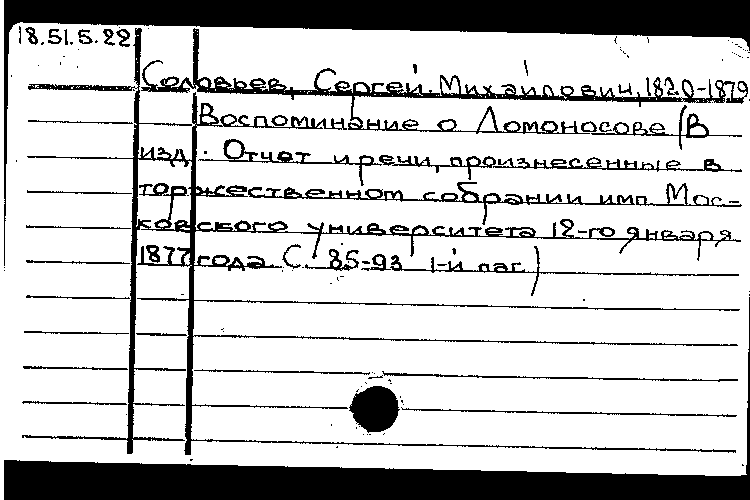 18.51.5.22
Соловьев, Сергей Михайлович, 1820-1879
Воспоминание о Ломоносове (В
изд.: Отчет и речи, произнесенные в
торжественном собрании имп. Мос-
ковского университета 12-го января
1877 года С. 85-93 1-й паг.)